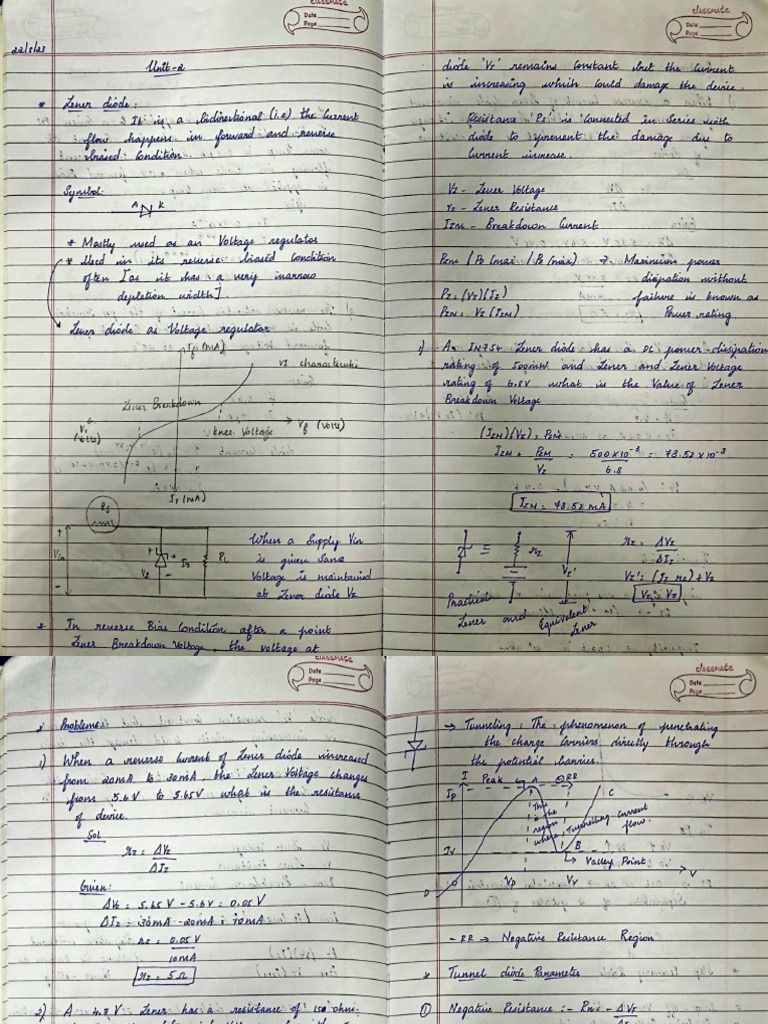 classmate
Date
Page
22/8/23
Unit-2
* Zener diode:
It is a bidirectional (i.e) the current
flow happens in forward and reverse
biased condition
Symbol:
A K
* Mostly used as an Voltage regulator
* Used in its reverse biased condition
often [as it has a very narrow
depletion width].
Zener diode as Voltage regulator
If (mA)
VI characteristi
Zener Breakdown
Vr (Volts)
knee Voltage
Vf (Volts)
Ir (mA)
Rs
+
Vin
-
+
Vz
-
Iz
RL
When a Supply Vin
is given same
Voltage is maintained
at Zener diode Vz
* In reverse Bias Condition after a point
Zener Breakdown Voltage, the voltage at
classmate
Date
Page
diode 'Vz' remains constant but the current
is increasing which could damage the device.
∴ Resistance Rs is connected in Series with
diode to prevent the damage due to
Current increase.
Vz - Zener Voltage
rz - Zener Resistance
IZM - Breakdown Current
PZM / PD (max) / PZ (max) → Maximum power
dissipation without
failure is known as
Power rating
PZ = (VZ)(IZ)
PZM = VZ (IZM)
1) A IN754 Zener diode has a DC power-dissipation
rating of 500mW and Zener and Zener Voltage
rating of 6.8V what is the Value of Zener
Breakdown Voltage
(IZM)(VZ) = PZM
IZM = PZM / VZ = 500×10⁻³ / 6.8 = 73.52 ×10⁻³
IZM = 73.52 mA
≡
rz
Vz'
rz = ΔVz / ΔIz
Vz' = (Iz rz) + Vz
Vz' = Vz
Practical
Zener and Equivalent
Zener
classmate
Date
Page
Problems:
1) When a reverse current of Zener diode increased
from 20mA to 30mA, the Zener Voltage changes
from 5.6V to 5.65V what is the resistance
of device.
Sol
rz = ΔVz / ΔIz
Given:
ΔVz = 5.65V - 5.6V = 0.05V
ΔIz = 30mA - 20mA = 10mA
rz = 0.05V / 10mA
rz = 5Ω
2) A 4.7V Zener has a resistance of 15 ohm.
classmate
Date
Page
→ Tunneling: The phenomenon of penetrating
the charge carriers directly through
the potential barrier.
I
Peak
A
RR
Ip
C
This is the region where Tunnelling current flow.
Iv
B
Valley Point
O
Vp
Vv
V
-RR → Negative Resistance Region
* Tunnel diode Parameter
① Negative Resistance :- Rn = - ΔVf